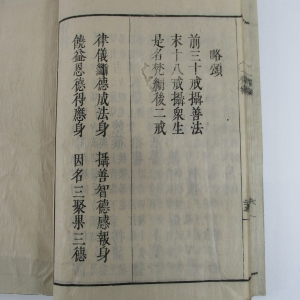 略頌
前三十戒攝善法
末十八戒攝衆生
是名梵網後二戒
律儀斷德成法身　攝善智德感報身
饒益恩德得應身　因名三聚果三德